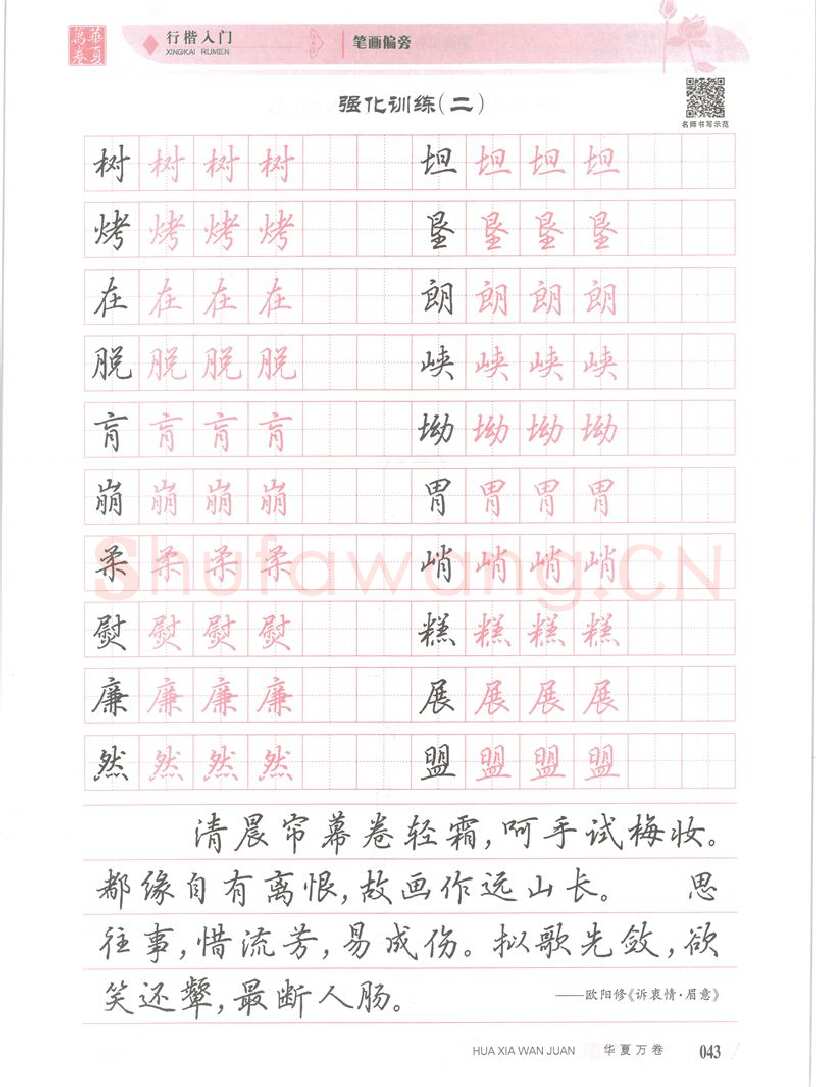 華夏萬卷
行楷入门 笔画偏旁
XINGKAI RUMEN
强化训练(二)
名师书写示范
树 树 树 树 坦 坦 坦 坦
烤 烤 烤 烤 垦 垦 垦 垦
在 在 在 在 朗 朗 朗 朗
脱 脱 脱 脱 峡 峡 峡 峡
肓 肓 肓 肓 坳 坳 坳 坳
崩 崩 崩 崩 胃 胃 胃 胃
柔 柔 柔 柔 峭 峭 峭 峭
Shufawang.CN
熨 熨 熨 熨 糕 糕 糕 糕
廉 廉 廉 廉 展 展 展 展
然 然 然 然 盟 盟 盟 盟
清晨帘幕卷轻霜,呵手试梅妆。
都缘自有离恨,故画作远山长。 思
往事,惜流芳,易成伤。拟歌先敛,欲
笑还颦,最断人肠。
——欧阳修《诉衷情·眉意》
HUA XIA WAN JUAN 华夏万卷 043